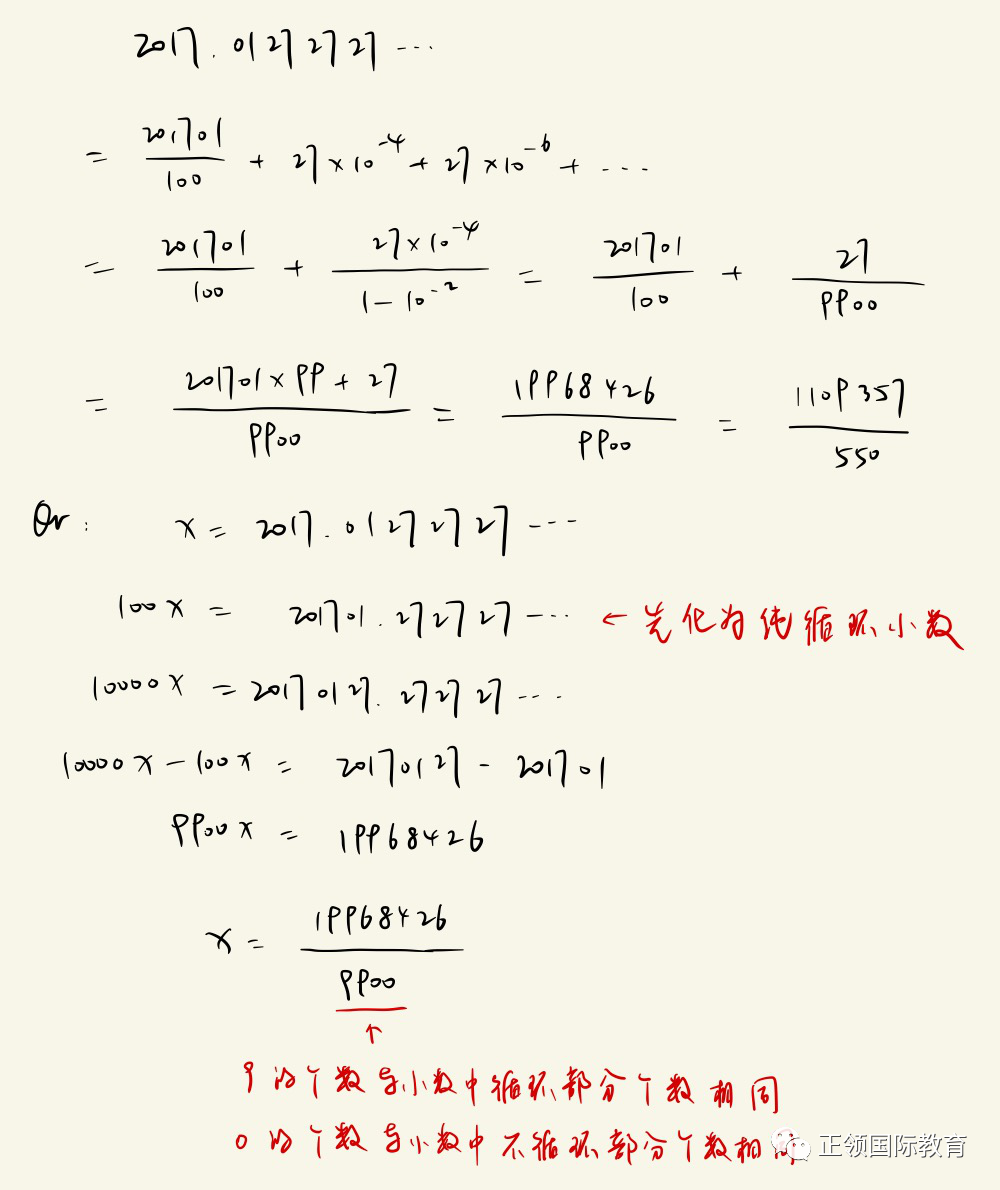 2017.01272727...
= 201701/100 + 27×10^-4 + 27×10^-6 + ...
= 201701/100 + (27×10^-4)/(1-10^-2) = 201701/100 + 27/9900
= (201701×99+27)/9900 = 19968426/9900 = 1109357/550
Or: x = 2017.01272727...
100x = 201701.272727... ← 先化为纯循环小数
10000x = 20170127.272727...
10000x - 100x = 20170127 - 201701
9900x = 19968426
x = 19968426/9900
↑
9的个数与小数中循环部分个数相同
0的个数与小数中不循环部分个数相同
正领国际教育